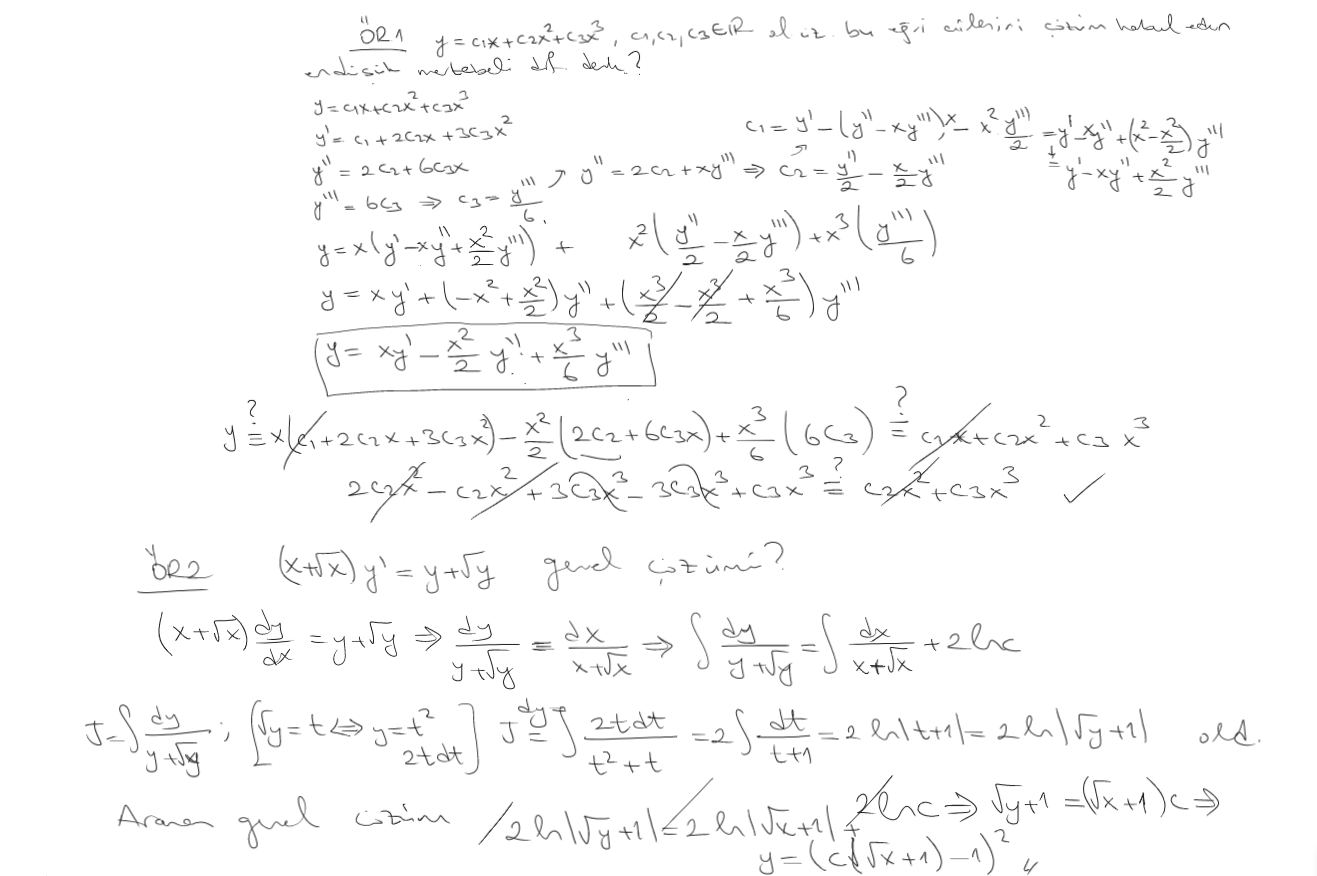 ÖR1 y = c₁x+c₂x²+c₃x³, c₁,c₂,c₃∈ℝ ol. üz. bu eğri ailesini çözüm kabul eden
en düşük mertebeli dif. denk.?
y = c₁x+c₂x²+c₃x³
y' = c₁ + 2c₂x + 3c₃x² c₁ = y' – (y'' – xy''')x – x² y'''/2 = y' – xy'' + (x² – x²/2) y'''
y'' = 2c₂ + 6c₃x ↗ y'' = 2c₂ + xy''' ⇒ c₂ = y''/2 – x/2 y''' = y' – xy'' + x²/2 y'''
y''' = 6c₃ ⇒ c₃ = y'''/6
y = x(y' – xy'' + x²/2 y''') + x²(y''/2 – x/2 y''') + x³(y'''/6)
y = xy' + (–x² + x²/2) y'' + (x³/2 – x³/2 + x³/6) y'''
y = xy' – x²/2 y'' + x³/6 y'''
y ≟ x(c₁ + 2c₂x + 3c₃x²) – x²/2 (2c₂ + 6c₃x) + x³/6 (6c₃) ≟ c₁x + c₂x² + c₃x³
2c₂x² – c₂x² + 3c₃x³ – 3c₃x³ + c₃x³ ≟ c₂x² + c₃x³ ✓
ÖR2 (x+√x) y' = y+√y genel çözümü?
(x+√x) dy/dx = y+√y ⇒ dy/(y+√y) = dx/(x+√x) ⇒ ∫ dy/(y+√y) = ∫ dx/(x+√x) + 2lnc
J = ∫ dy/(y+√y) ; [√y = t ⇔ y = t² dy = 2tdt] J = ∫ 2tdt/(t²+t) = 2∫ dt/(t+1) = 2ln|t+1| = 2ln|√y+1| old.
Aranan genel çözüm 2ln|√y+1| = 2ln|√x+1| + 2lnc ⇒ √y+1 = (√x+1)c ⇒
y = (c(√x+1) – 1)² //